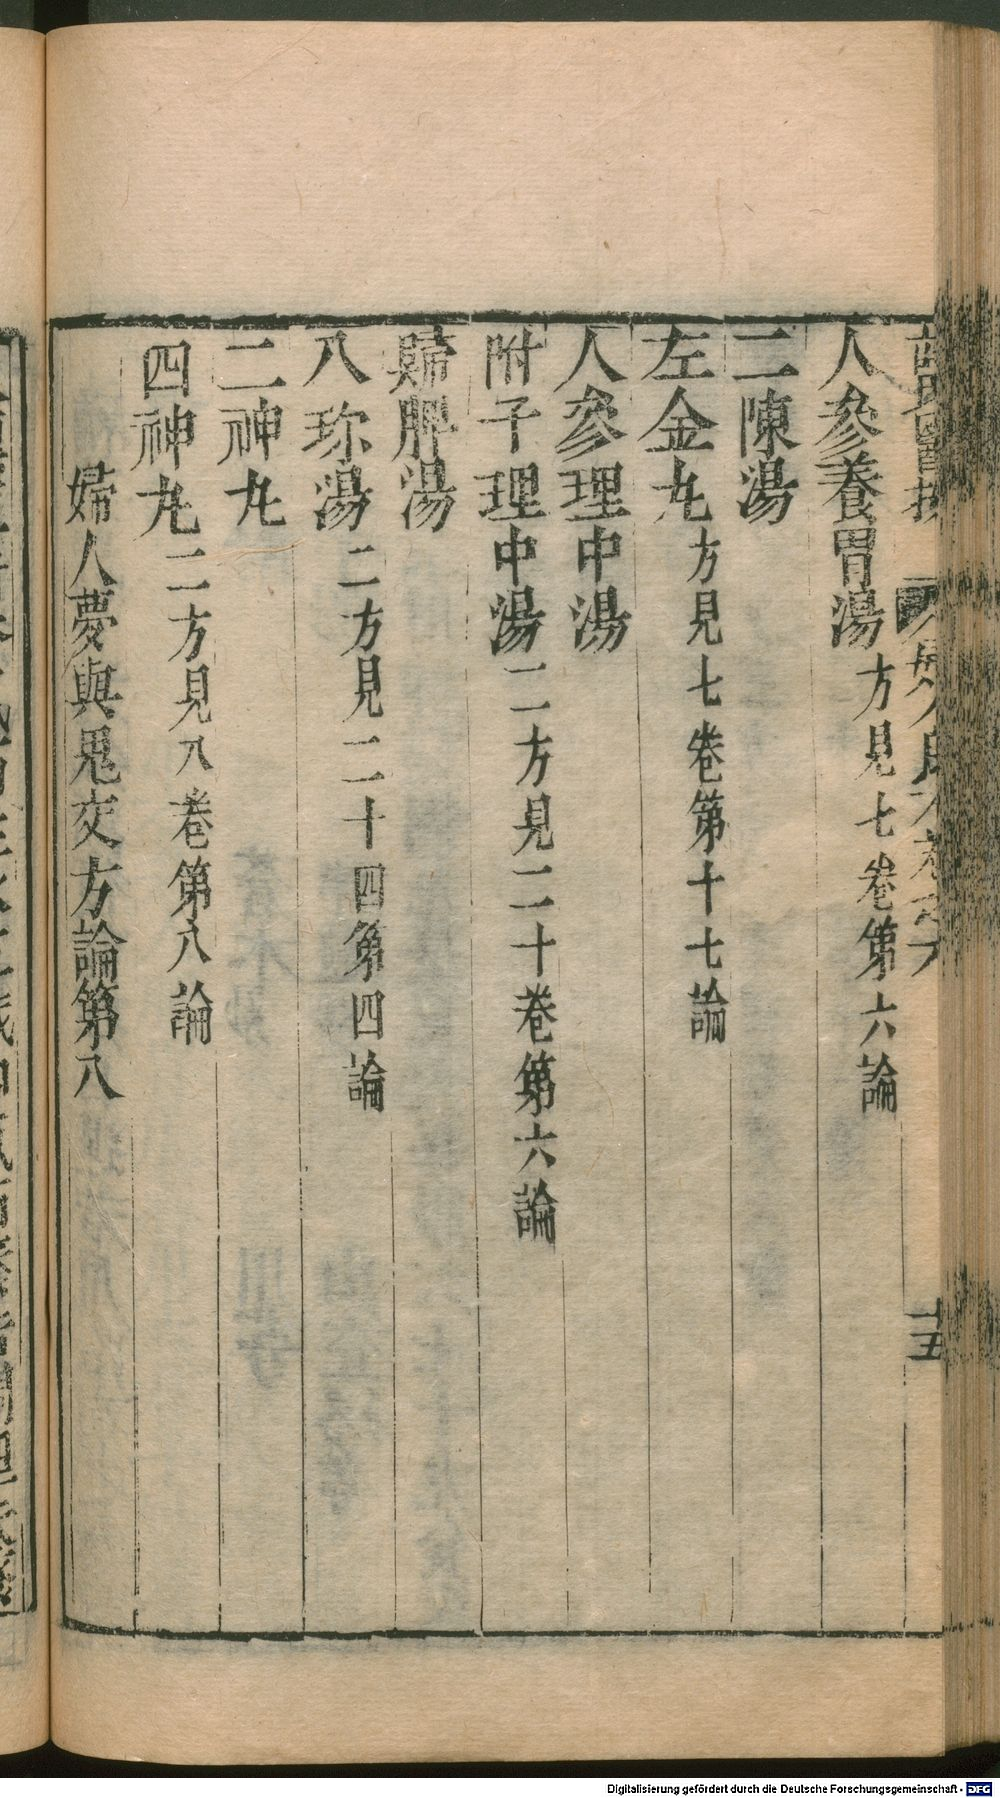 人參養胃湯方見七卷第六論
二陳湯
左金丸方見七卷第十七論
人參理中湯
附子理中湯二方見二十卷第六論
歸脾湯
八珎湯二方見二十四第四論
二神丸
四神丸二方見八卷第八論
婦人夢與鬼交方論第八
十五
Digitalisierung gefördert durch die Deutsche Forschungsgemeinschaft - DFG